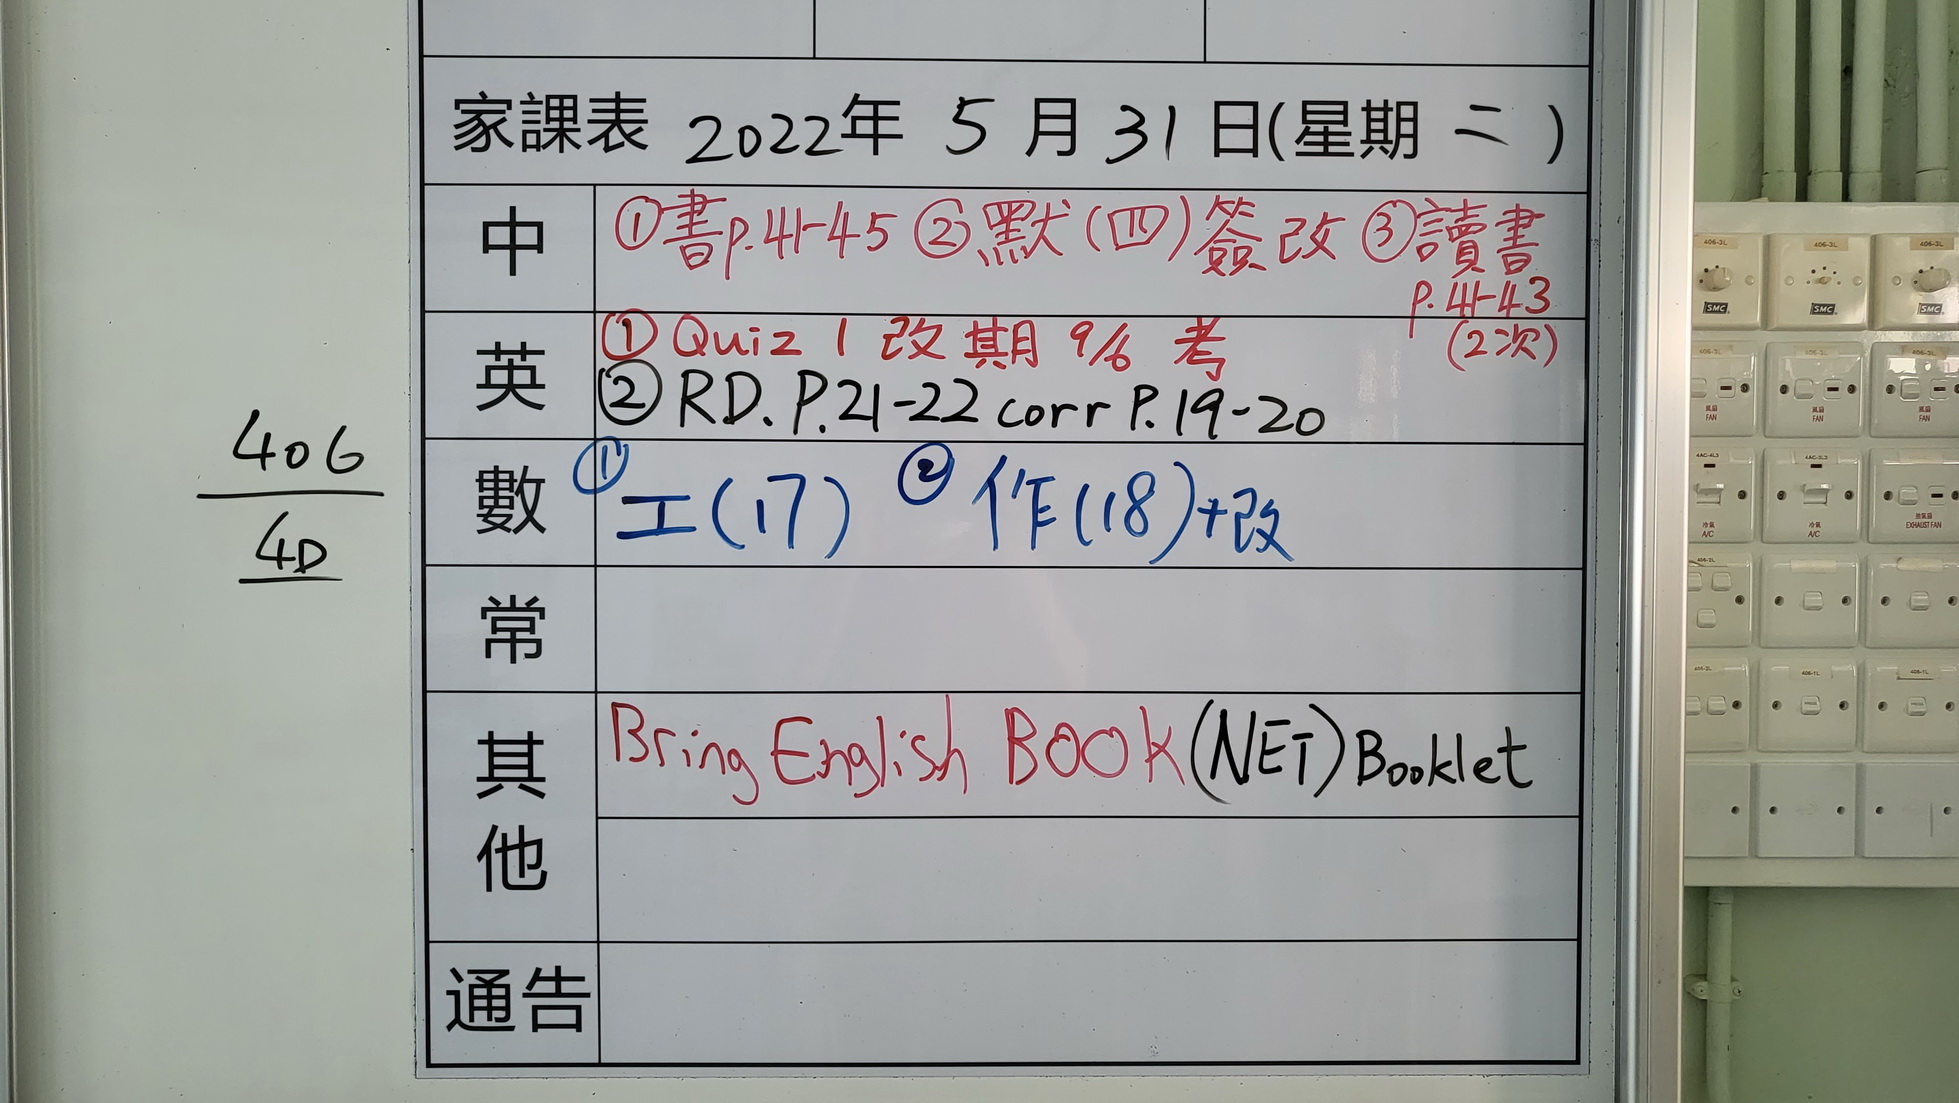 家課表 2022年 5月31日(星期二)
中 ①書p.41-45 ②默(四)簽改 ③讀書
p.41-43
(2次)
英 ①Quiz 1 改期 9/6 考
②RD. P.21-22 corr P.19-20
數 ①工(17) ②作(18)+改
常
其他 Bring English BOOK (NET) Booklet
通告
406
4D
406-3L 406-3L 406-3L
SMC SMC SMC
406-3L 406-3L
風扇 風扇 風扇
FAN FAN FAN
4AC-4L3 4AC-3L3
冷氣 冷氣 抽氣扇
A/C A/C EXHAUST FAN
406-2L
406-2L 406-1L 406-1L